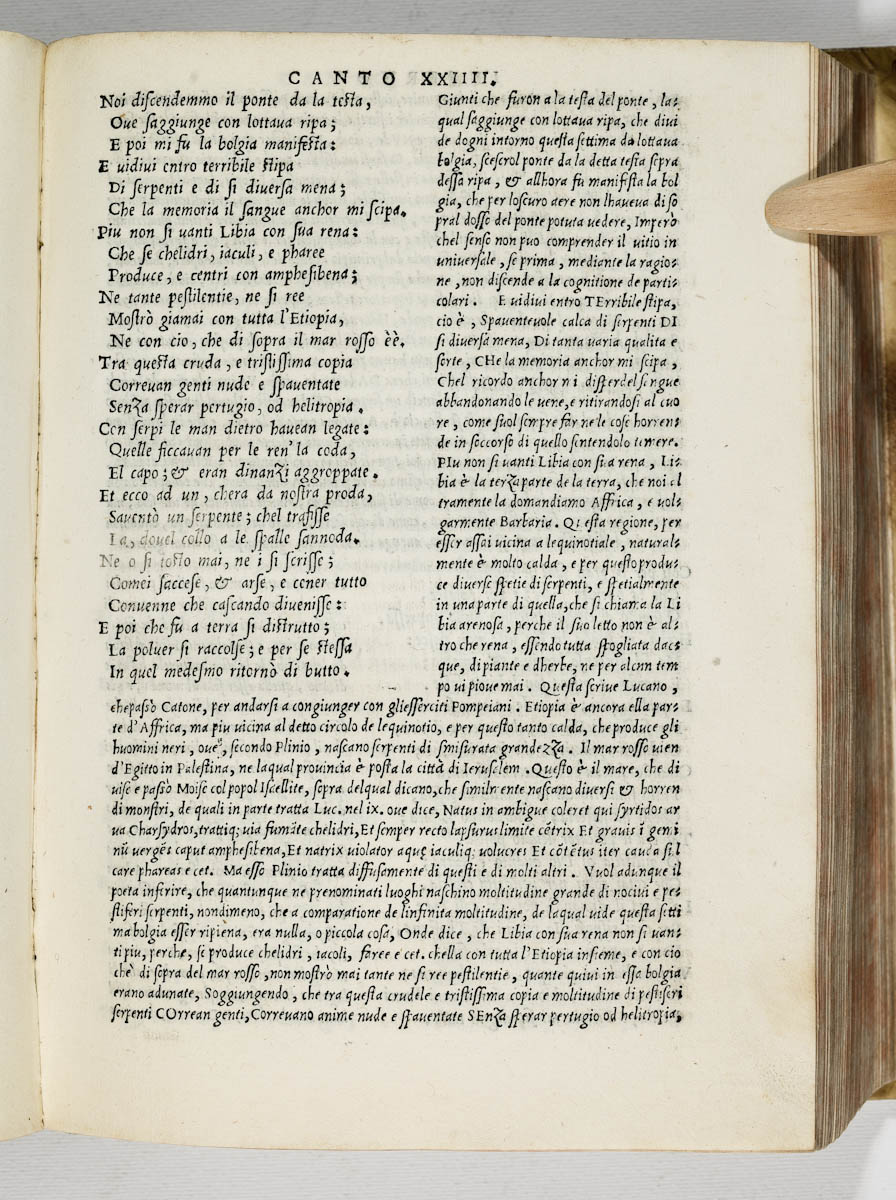 CANTO XXIIII.
Noi discendemmo il ponte da la testa,
Oue saggiunge con lottaua ripa;
E poi mi fu la bolgia manifesta:
E uidiui entro terribile stipa
Di serpenti e di si diuersa mena;
Che la memoria il sangue anchor mi scipa.
Piu non si uanti Libia con sua rena:
Che se chelidri, iaculi, e pharee
Produce, e centri con amphesibena;
Ne tante pestilentie, ne si ree
Mostrò giamai con tutta l'Etiopia,
Ne con cio, che di sopra il mar rosso èè.
Tra questa cruda, e tristissima copia
Correuan genti nude e spauentate
Senza sperar pertugio, od helitropia.
Con serpi le man dietro hauean legate:
Quelle ficcauan per le ren' la coda,
El capo; & eran dinanzi aggroppate.
Et ecco ad un, chera da nostra proda,
Sauentò un serpente; chel trafisse
La, douel collo a le spalle sannoda.
Ne o si tosto mai, ne i si scrisse;
Comei saccese, & arse, e cener tutto
Conuenne che cascando diuenisse:
E poi che fu a terra si distrutto;
La poluer si raccolse; e per se stessa
In quel medesmo ritornò di butto.
Giunti che furon a la testa del ponte, la-
qual saggiunge con lottaua ripa, che diui
de dogni intorno questa settima da lottaua
bolgia, scescrol ponte da la detta testa sopra
dessa ripa, & allhora fu manifesta la bol
gia, che per loscuro aere non lhaueua di so
pral dosso del ponte potuta uedere, Imperò
chel senso non puo comprender il uitio in
uniuersale, se prima, mediante la ragio-
ne, non discende a la cognitione de parti-
colari. E uidiui entro TErribile stipa,
cio è, Spauenteuole calca di serpenti DI
si diuersa mena, Di tanta uaria qualita e
sorte, CHe la memoria anchor mi scipa,
Chel ricordo anchor mi disperdel sangue
abbandonando le uene, e ritirandosi al cuo
re, come suol sempre far ne le cose horren-
de in soccorso di quello sentendolo temere.
PIu non si uanti Libia con sua rena, Li-
bia è la terza parte de la terra, che noi ol
tramente la domandiamo Affrica, e uol-
garmente Barbaria. Questa regione, per
esser assai uicina a lequinotiale, natural-
mente è molto calda, e per questo produ-
ce diuerse spetie di serpenti, e spetialmente
in una parte di quella, che si chiama la Li
bia arenosa, perche il suo letto non è al-
tro che rena, essendo tutta spogliata dac-
que, di piante e dherbe, ne per alcun tem
po ui pioue mai. Questa scriue Lucano,
che passò Catone, per andarsi a congiunger con gliesserciti Pompeiani. Etiopia è ancora ella par-
te d'Affrica, ma piu uicina al detto circolo de lequinotio, e per questo tanto calda, che produce gli
huomini neri, oue, secondo Plinio, nascano serpenti di smisurata grandezza. Il mar rosso uien
d'Egitto in Palestina, ne laqual prouincia è posta la città di Ierusalem. Questo è il mare, che di
uise e passò Moise col popol Israellite, sopra delqual dicano, che similmente nascano diuersi & horren
di monstri, de quali in parte tratta Luc. nel ix. oue dice, Natus in ambigue coleret qui syrtidos ar
ua Charsydros, trattiq; uia fumāte chelidri, Et semper recto lapsurus limite cētrix Et grauis ī gemi
nū vergēs caput amphesibena, Et natrix uiolator aquę iaculiq; uolucres Et cōtētus iter cauda sul
care phareas e cet. Ma esso Plinio tratta diffusamente di questi e di molti altri. Vuol adunque il
poeta inferire, che quantunque ne prenominati luoghi naschino moltitudine grande di nociui e pe-
stiferi serpenti, nondimeno, che a comparatione de linfinita moltitudine, de laqual uide questa setti
ma bolgia esser ripiena, era nulla, o piccola cosa, Onde dice, che Libia con sua rena non si uan-
ti piu, perche, se produce chelidri, iacoli, faree e cet. chella con tutta l'Etiopia insieme, e con cio
che di sopra del mar rosso, non mostrò mai tante ne si ree pestilentie, quante quiui in essa bolgia
erano adunate, Soggiungendo, che tra questa crudele e tristissima copia e moltitudine di pestiferi
serpenti COrrean genti, Correuano anime nude e spauentate SEnza sperar pertugio od helitropia,